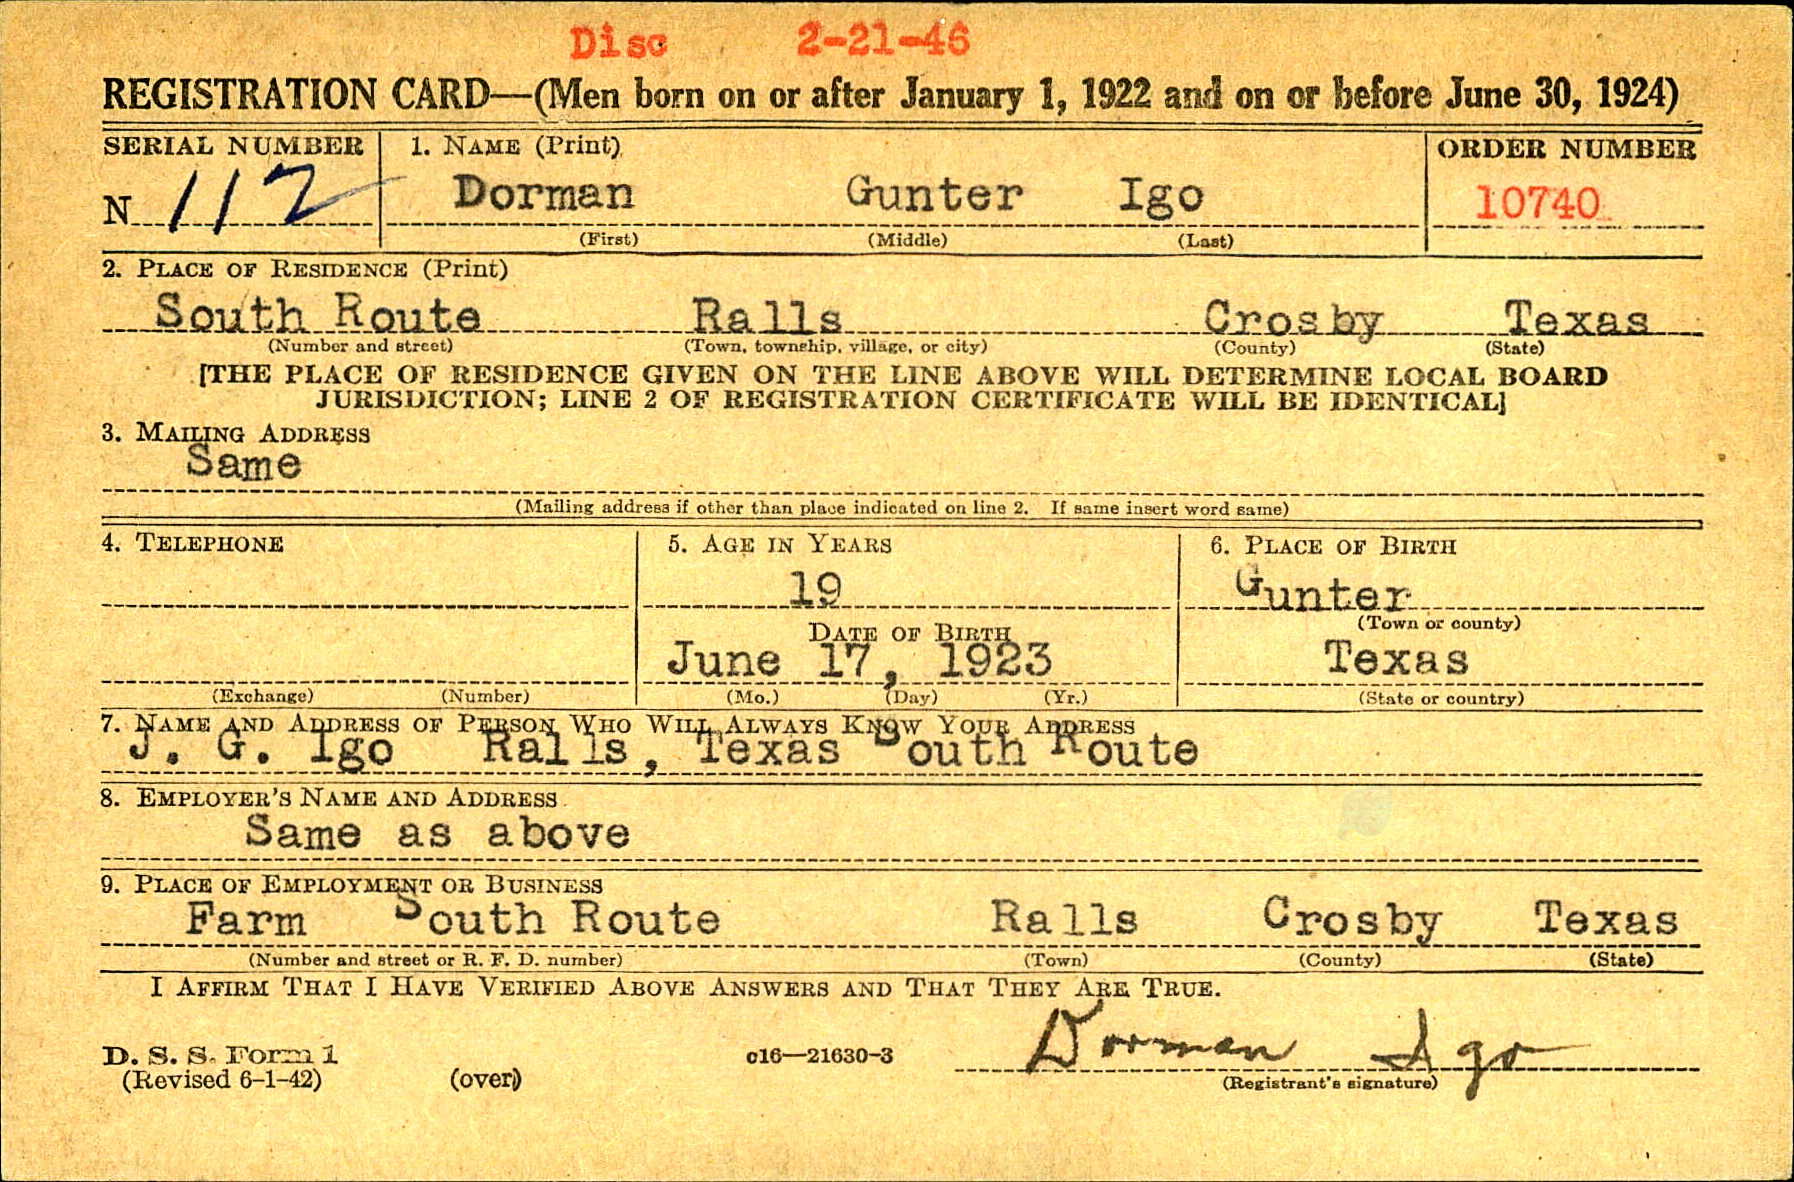 Disc 2-21-46
REGISTRATION CARD—(Men born on or after January 1, 1922 and on or before June 30, 1924)
SERIAL NUMBER 1. NAME (Print) ORDER NUMBER
N 112 Dorman Gunter Igo 10740
(First) (Middle) (Last)
2. PLACE OF RESIDENCE (Print)
South Route Ralls Crosby Texas
(Number and street) (Town, township, village, or city) (County) (State)
[THE PLACE OF RESIDENCE GIVEN ON THE LINE ABOVE WILL DETERMINE LOCAL BOARD
JURISDICTION; LINE 2 OF REGISTRATION CERTIFICATE WILL BE IDENTICAL]
3. MAILING ADDRESS
Same
(Mailing address if other than place indicated on line 2. If same insert word same)
4. TELEPHONE 5. AGE IN YEARS 6. PLACE OF BIRTH
19 Gunter
(Town or county)
DATE OF BIRTH
June 17, 1923 Texas
(Exchange) (Number) (Mo.) (Day) (Yr.) (State or country)
7. NAME AND ADDRESS OF PERSON WHO WILL ALWAYS KNOW YOUR ADDRESS
J. G. Igo Ralls, Texas South Route
8. EMPLOYER'S NAME AND ADDRESS
Same as above
9. PLACE OF EMPLOYMENT OR BUSINESS
Farm South Route Ralls Crosby Texas
(Number and street or R. F. D. number) (Town) (County) (State)
I AFFIRM THAT I HAVE VERIFIED ABOVE ANSWERS AND THAT THEY ARE TRUE.
Dorman Igo
D. S. S. Form 1 c16—21630-3
(Revised 6-1-42) (over) (Registrant's signature)